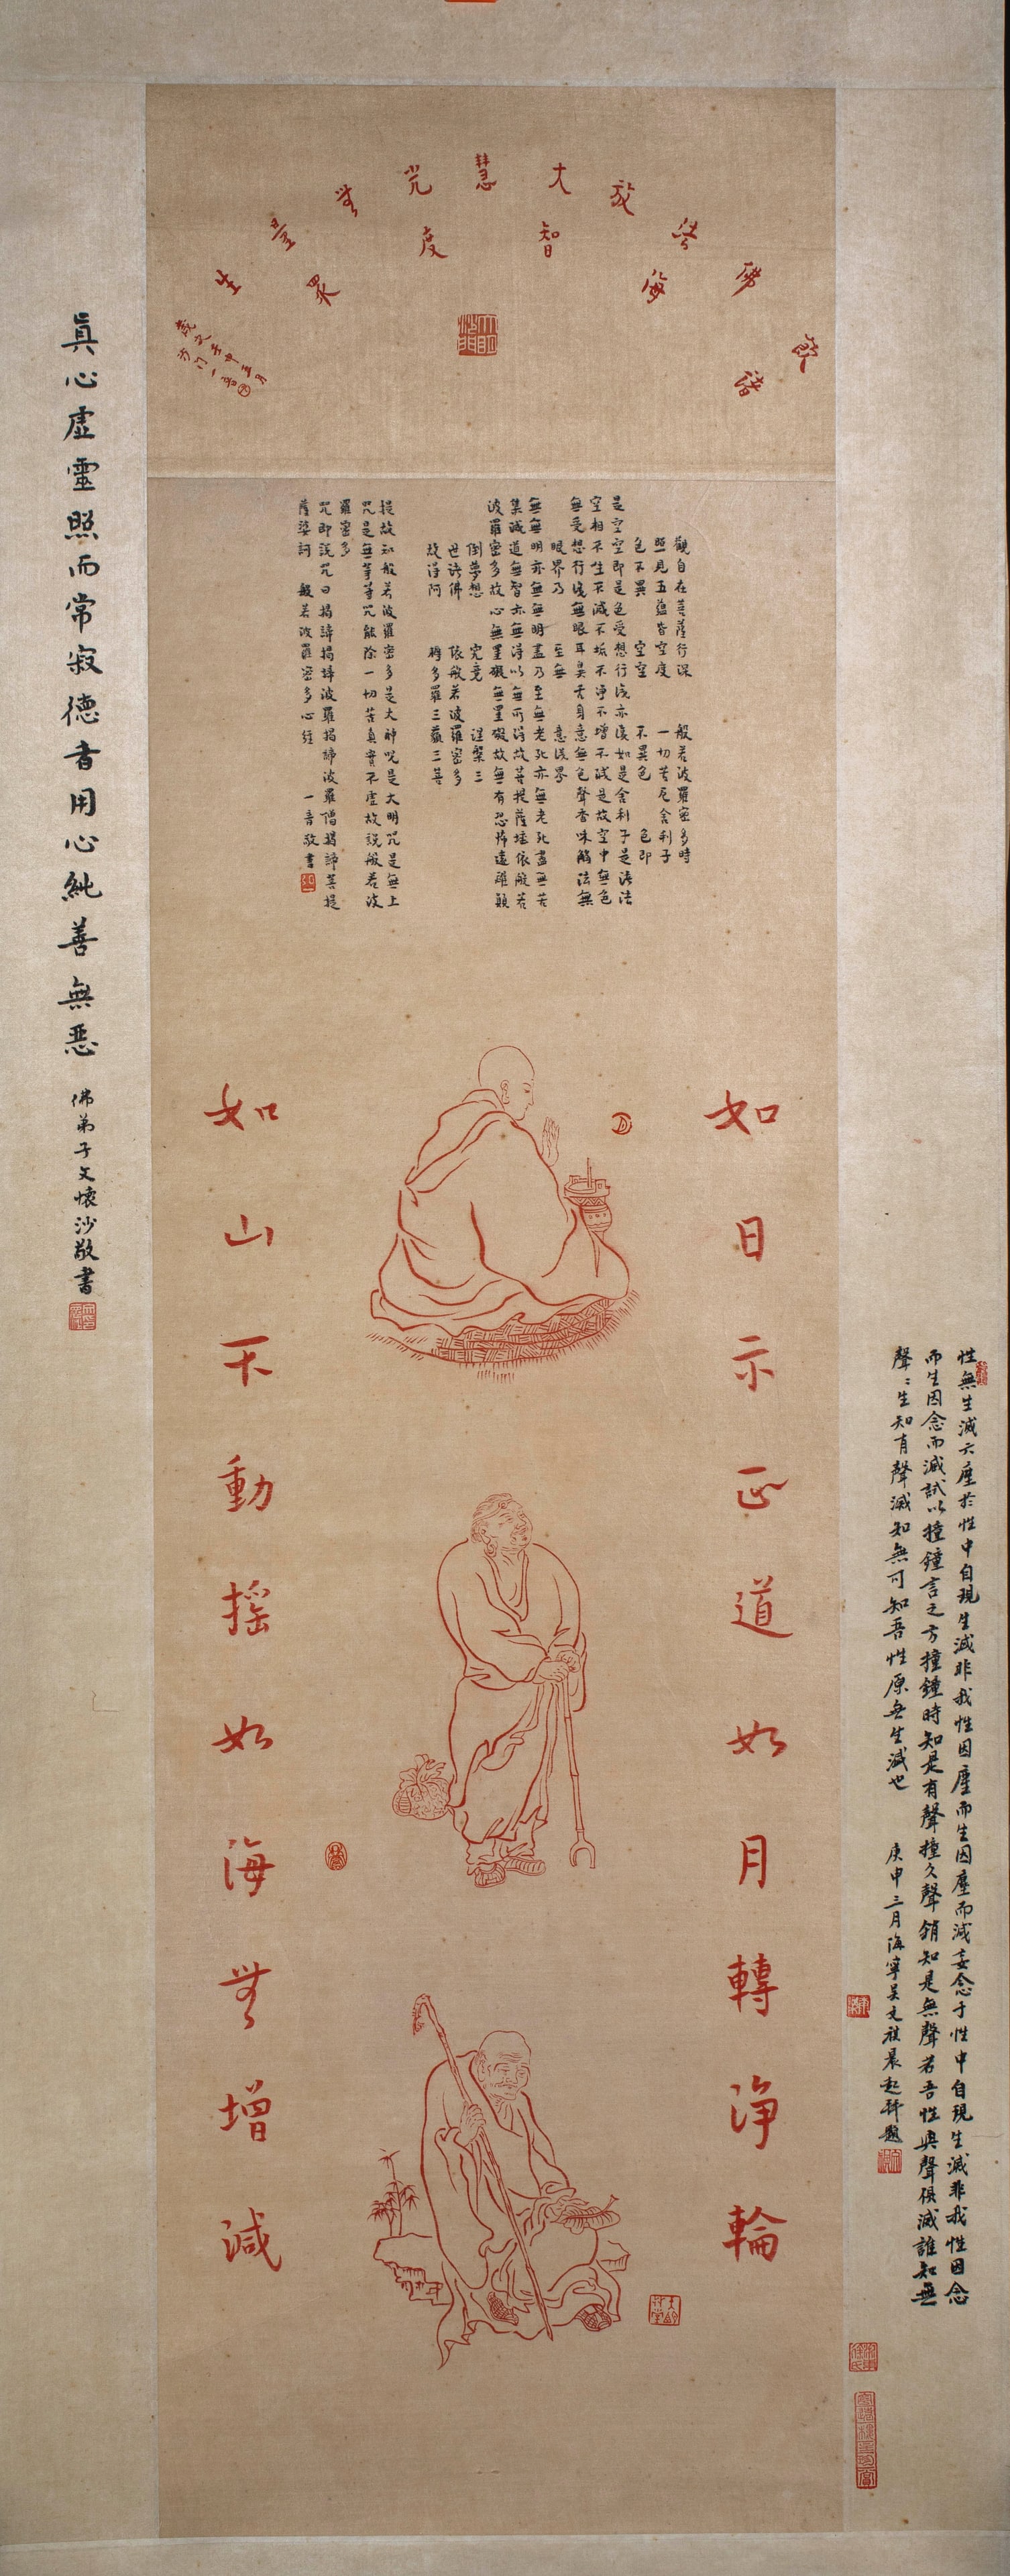 於諸佛法海放大智慧光度無量眾生
歲次壬申三月
沙門一音
觀自在菩薩行深 般若波羅密多時
照見五蘊皆空度 一切苦厄舍利子
色不異 空空 不異色 色即
是空空即是色受想行識亦復如是舍利子是諸法
空相不生不滅不垢不淨不增不減是故空中無色
無受想行識無眼耳鼻舌身意無色聲香味觸法無
眼界乃 至無 意識界
無無明亦無無明盡乃至無老死亦無老死盡無苦
集滅道無智亦無得以無所得故菩提薩埵依般若
波羅密多故心無罣礙無罣礙故無有恐怖遠離顛
倒夢想 究竟 涅槃三
世諸佛 依般若波羅密多
故得阿 耨多羅三藐三菩
提故知般若波羅密多是大神咒是大明咒是無上
咒是無等等咒能除一切苦真實不虛故說般若波
羅密多
咒即說咒曰揭諦揭諦波羅揭諦波羅僧揭諦菩提
薩婆訶 般若波羅密多心經 一音敬書
如日示正道如月轉淨輪
如山不動搖如海無增減
性無生滅六塵於性中自現生滅非我性因塵而生因塵而滅妄念于性中自現生滅非我性因念
而生因念而滅試以撞鐘言之方撞鐘時知是有聲撞久聲銷知是無聲若吾性與聲俱滅誰知無
聲聲生知有聲滅知無可知吾性原無生滅也 庚申三月海寧吳文祺晨起拜題
真心虛靈照而常寂德者用心純善無惡 佛弟子文懷沙敬書